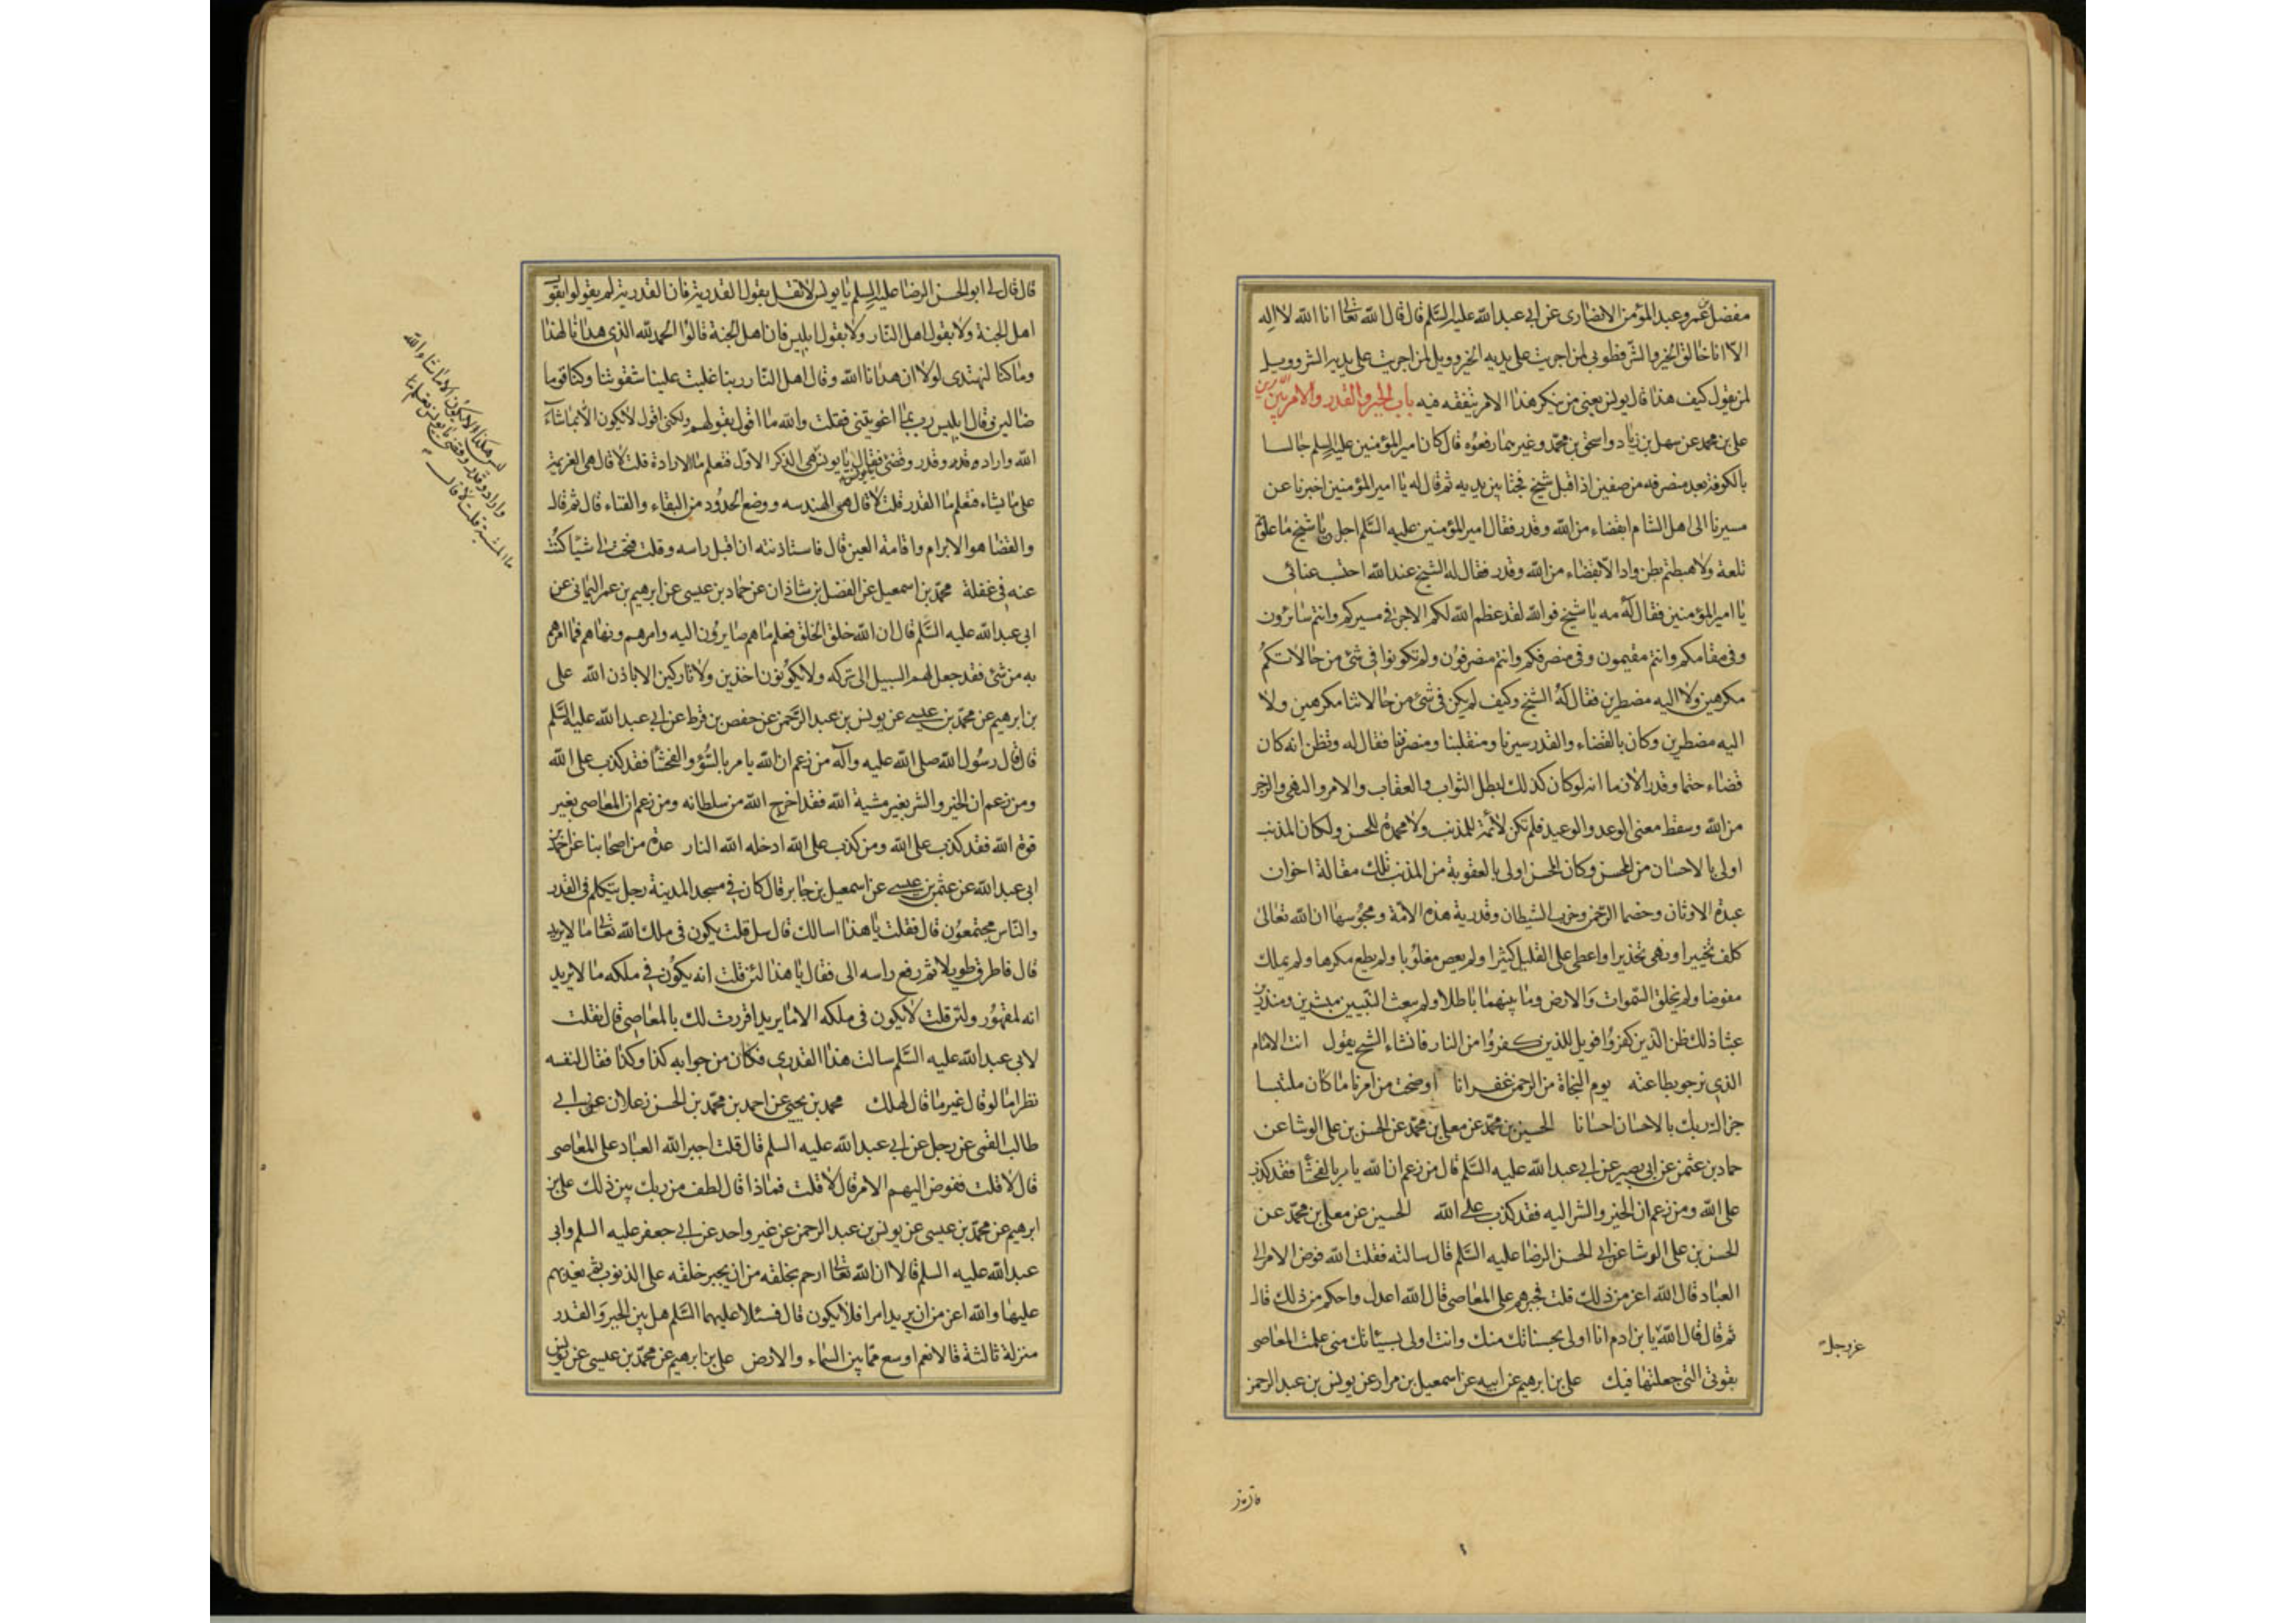 مفضل بن عمرو عبد المؤمن الانصارى عن ابى عبد الله عليه السّلم قال قال الله تعالى انا الله لا اله
الّا انا خالق الخير والشّر فطوبى لمن اجريت على يديه الخير وويل لمن اجريت على يديه الشر وويل
لمن يقول كيف هذا قال يونس يعنى من ينكر هذا الامر بتفقه فيه باب الجبر والقدر والامر بين الامرين
على بن محمد عن سهل بن زياد واسحق بن محمّد وغيرهما رفعوه قال كان امير المؤمنين عليه السلم جالسا
بالكوفة بعد منصرفه من صفين اذ اقبل شيخ فجثا بين يديه ثم قال له يا امير المؤمنين اخبرنا عن
مسيرنا الى اهل الشام ابقضاء من الله وقدر فقال امير المؤمنين عليه السّلم اجل يا شيخ ما علوتم
تلعة ولا هبطتم بطن واد الا بقضاء من الله وقدر فقال له الشيخ عند الله احتسب عنائى
يا امير المؤمنين فقال له مه يا شيخ فو الله لقد عظم الله لكم الاجر فى مسيركم وانتم سائرون
وفى مقامكم وانتم مقيمون وفى منصرفكم وانتم منصرفون ولم تكونوا فى شئ من حالاتكم
مكرهين ولا اليه مضطرين فقال له الشيخ وكيف لم يكن فى شئ من حالاتنا مكرهين ولا
اليه مضطرين وكان بالقضاء والقدر سيرنا ومنقلبنا ومنصرفنا فقال له وتظن انه كان
قضاء حتما وقدرا لازما انه لو كان كذلك لبطل الثواب والعقاب والامر والنهى والزجر
من الله وسقط معنى الوعد والوعيد فلم تكن لائمة للمذنب ولا محمدة للمحسن ولكان المذنب
اولى بالاحسان من المحسن وكان المحسن اولى بالعقوبة من المذنب تلك مقالة اخوان
عبدة الاوثان وخصما الرحمن وحزب الشيطان وقدرية هذه الامّة ومجوسها ان الله تعالى
كلف تخييرا ونهى تحذيرا واعطى على القليل كثيرا ولم يعص مغلوبا ولم يطع مكرها ولم يملك
مفوضا ولم يخلق السّموات والارض وما بينهما باطلا ولم يبعث النّبيين مبشرين ومنذرين
عبثا ذلك ظن الّذين كفروا فويل للذين كفروا من النار فانشاء الشيخ يقول انت الامام
الذى نرجو بطاعته يوم النجاة من الرحمن غفرانا اوضحت من امرنا ما كان ملتبسا
جزاك ربك بالاحسان احسانا الحسين بن محمّد عن معلى بن محمّد عن الحسن بن على الوشا عن
حماد بن عثمن عن ابى بصير عن ابى عبد الله عليه السّلم قال من زعم ان الله يامر بالفحشا فقد كذب
على الله ومن زعم ان الخير والشر اليه فقد كذب على الله الحسين عن معلى بن محمّد عن
الحسن بن على الوشا عن ابى الحسن الرضا عليه السّلم قال سالته فقلت الله فوض الامر الى
العباد قال الله اعز من ذلك قلت فجبرهم على المعاصى قال الله اعدل واحكم من ذلك قال
ثم قال قال الله يا بن ادم انا اولى بحسناتك منك وانت اولى بسيئاتك منى عملت المعاصى
بقوتى التى جعلتها فيك على بن ابرهيم عن ابيه عن اسمعيل بن مرار عن يونس بن عبد الرحمن
عز وجل
قال قال لى ابو الحسن الرضا عليه السلم يا يونس لا تقل بقول القدرية فان القدرية لم يقولوا بقول
اهل الجنة ولا بقول اهل النّار ولا بقول ابليس فان اهل الجنة قالوا الحمد لله الذى هدانا لهذا
وما كنا لنهتدى لولا ان هدانا الله وقال اهل النّار ربنا غلبت علينا شقوتنا وكنا قوما
ضالين وقال ابليس رب بما اغويتنى فقلت والله ما اقول بقولهم ولكنى اقول لا يكون الا بما شاء
الله واراد وقدر وقضى فقال يا يونس هى الذكر الاول فتعلم ما الارادة قلت لا قال هى العزيمة
على ما يشاء فتعلم ما القدر قلت لا قال هى الهندسه ووضع الحدود من البقاء والفناء قال ثم قال
والقضا هو الابرام واقامة العين قال فاستاذنته ان اقبل راسه وقلت فتحت لى شيئا كنت
عنه فى غفلة محمّد بن اسمعيل عن الفضل بن شاذان عن حماد بن عيسى عن ابرهيم بن عمر اليمانى عن
ابى عبد الله عليه السّلم قال ان الله خلق الخلق فعلم ما هم صايرون اليه وامرهم ونهاهم فما امرهم
به من شئ فقد جعل لهم السبيل الى تركه ولا يكونون اخذين ولا تاركين الا باذن الله على
بن ابرهيم عن محمّد بن عيسى عن يونس بن عبد الرّحمن عن حفص بن قرط عن ابى عبد الله عليه السّلم
قال قال رسول الله صلى الله عليه وآله من زعم ان الله يامر بالسّوء والفحشا فقد كذب على الله
ومن زعم ان الخير والشر بغير مشية الله فقد اخرج الله من سلطانه ومن زعم ان المعاصى بغير
قوة الله فقد كذب على الله ومن كذب على الله ادخله الله النار عدة من اصحابنا عن احمد بن
ابى عبد الله عن عثمن بن عيسى عن اسمعيل بن جابر قال كان فى مسجد المدينة رجل يتكلم فى القدر
والنّاس مجتمعون قال فقلت يا هذا اسالك قال سل قلت يكون فى ملك الله تعالى ما لا يريد
قال فاطرق طويلا ثم رفع راسه الى فقال يا هذا لئن قلت انه يكون فى ملكه ما لا يريد
انه لمقهور ولئن قلت لا يكون فى ملكه الا ما يريد اقررت لك بالمعاصى قال فقلت
لابى عبد الله عليه السّلم سالت هذا القدرى فكان من جوابه كذا وكذا فقال لنفسه
نظر اما لو قال غير ما قال لهلك محمد بن يحيى عن احمد بن محمّد بن الحسن زعلان عن ابى
طالب القمى عن رجل عن ابى عبد الله عليه السلم قال قلت اجبر الله العباد على المعاصى
قال لا قلت ففوض اليهم الامر قال لا قلت فماذا قال لطف من ربك بين ذلك على بن
ابرهيم عن محمّد بن عيسى عن يونس بن عبد الرحمن عن غير واحد عن ابى جعفر عليه السلم وابى
عبد الله عليه السلم قالا ان الله تعالى ارحم بخلقه من ان يجبر خلقه على الذنوب ثم يعذبهم
عليها والله اعز من ان يريد امرا فلا يكون قال فسئلا عليهما السّلم هل بين الجبر والقدر
منزلة ثالثة قالا نعم اوسع ممّا بين السّماء والارض على بن ابرهيم عن محمّد بن عيسى عن يونس
ليس هكذا لا يكون الا ما شاء الله
واراد وقدر وقضى يا يونس تعلم
ما المشية قلت لا قال